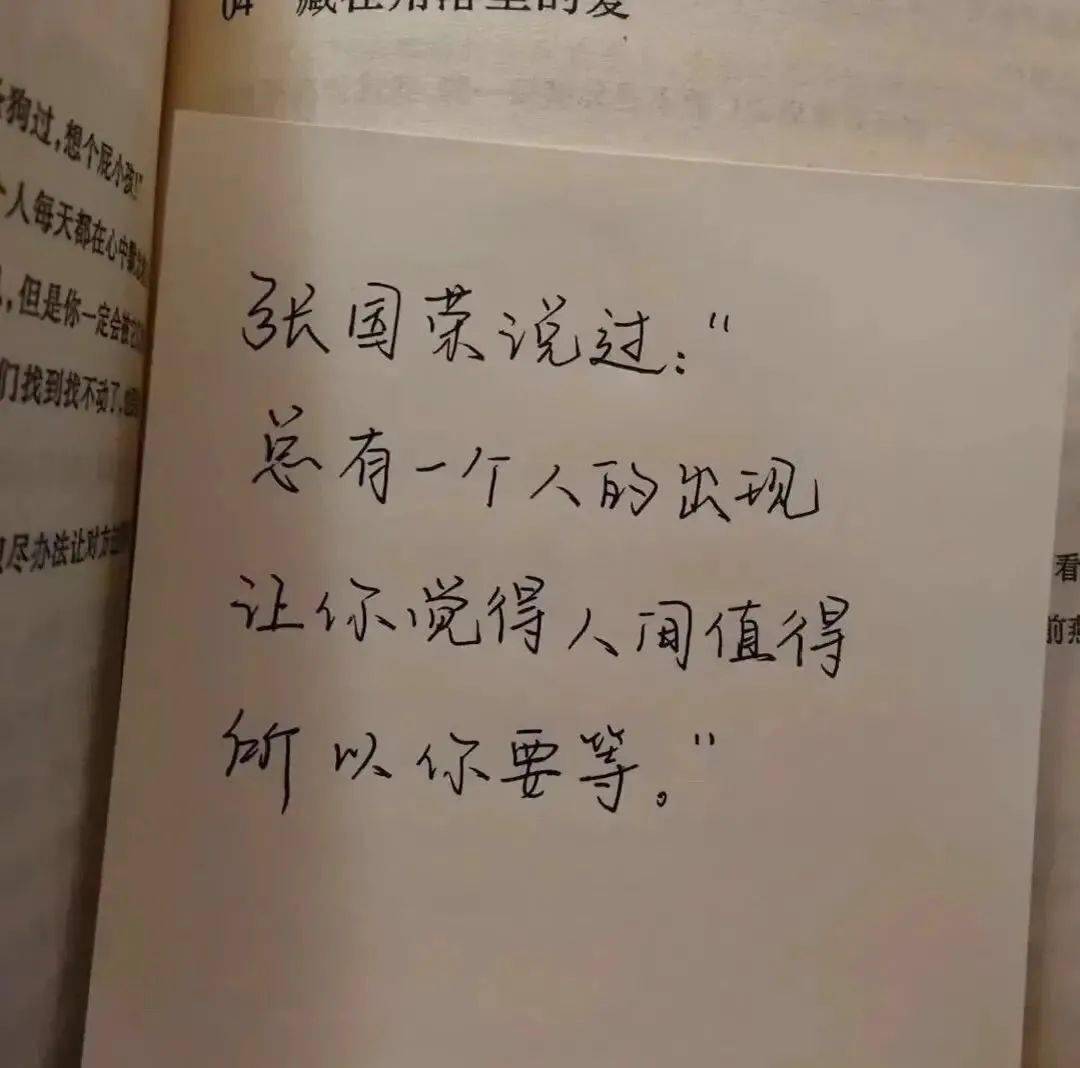 04 藏在角落里的爱
狗过,想个屁小孩!"
个人每天都在心中默
,但是你一定会被它
们找到找不动了,
尽办法让对方
张国荣说过:"
总有一个人的出现
让你觉得人间值得
所以你要等。"
看
前燕